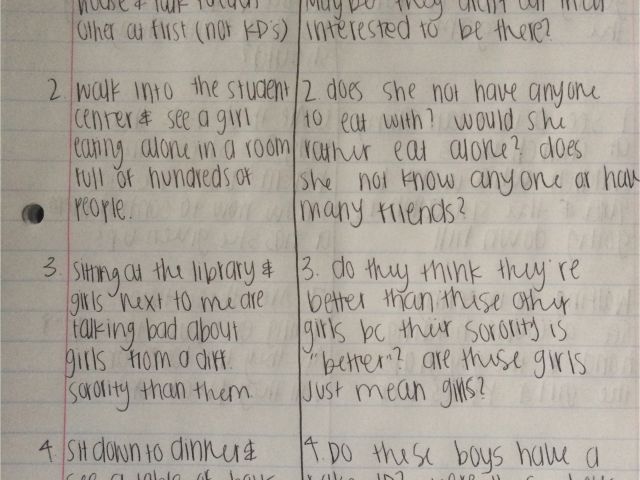 house & talk to each
other at first (not KD's)
2. walk into the student
center & see a girl
eating alone in a room
full of hundreds of
people.
3. sitting at the library &
girls next to me are
talking bad about
girls from a diff.
sorority than them
4. sit down to dinner &
see a table of boys
Maybe they
interested to be there?
2. does she not have anyone
to eat with? would she
rather eat alone? does
she not know anyone or have
many friends?
3. do they think they're
better than these other
girls bc their sorority is
"better"? are these girls
just mean girls?
4. Do these boys have a